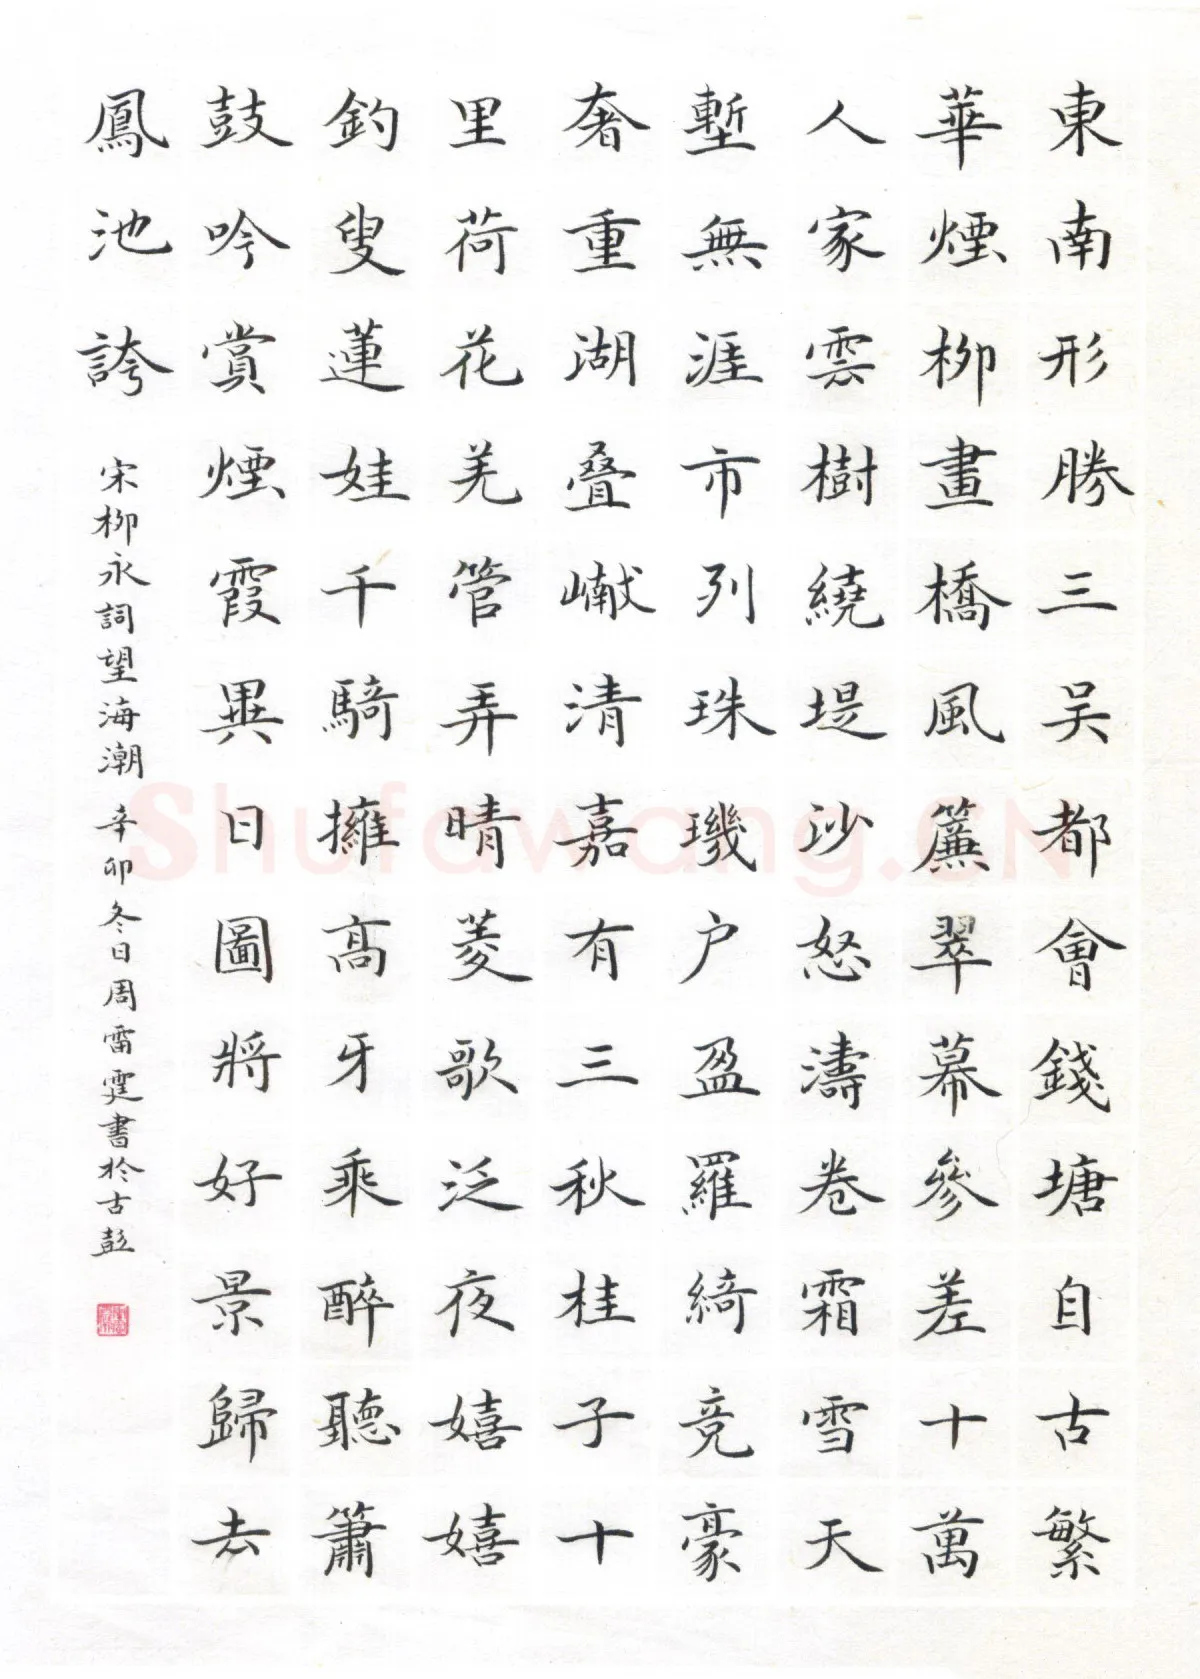 東南形勝三吴都會錢塘自古繁
華煙柳畫橋風簾翠幕參差十萬
人家雲樹繞堤沙怒濤卷霜雪天
塹無涯市列珠璣户盈羅綺竞豪
奢重湖叠巘清嘉有三秋桂子十
里荷花羌管弄晴菱歌泛夜嬉嬉
釣叟蓮娃千騎擁高牙乘醉聽簫
鼓吟賞煙霞異日圖將好景歸去
鳳池誇
宋柳永詞望海潮 辛卯冬日周雷霆書於古彭
Shufawang.CN